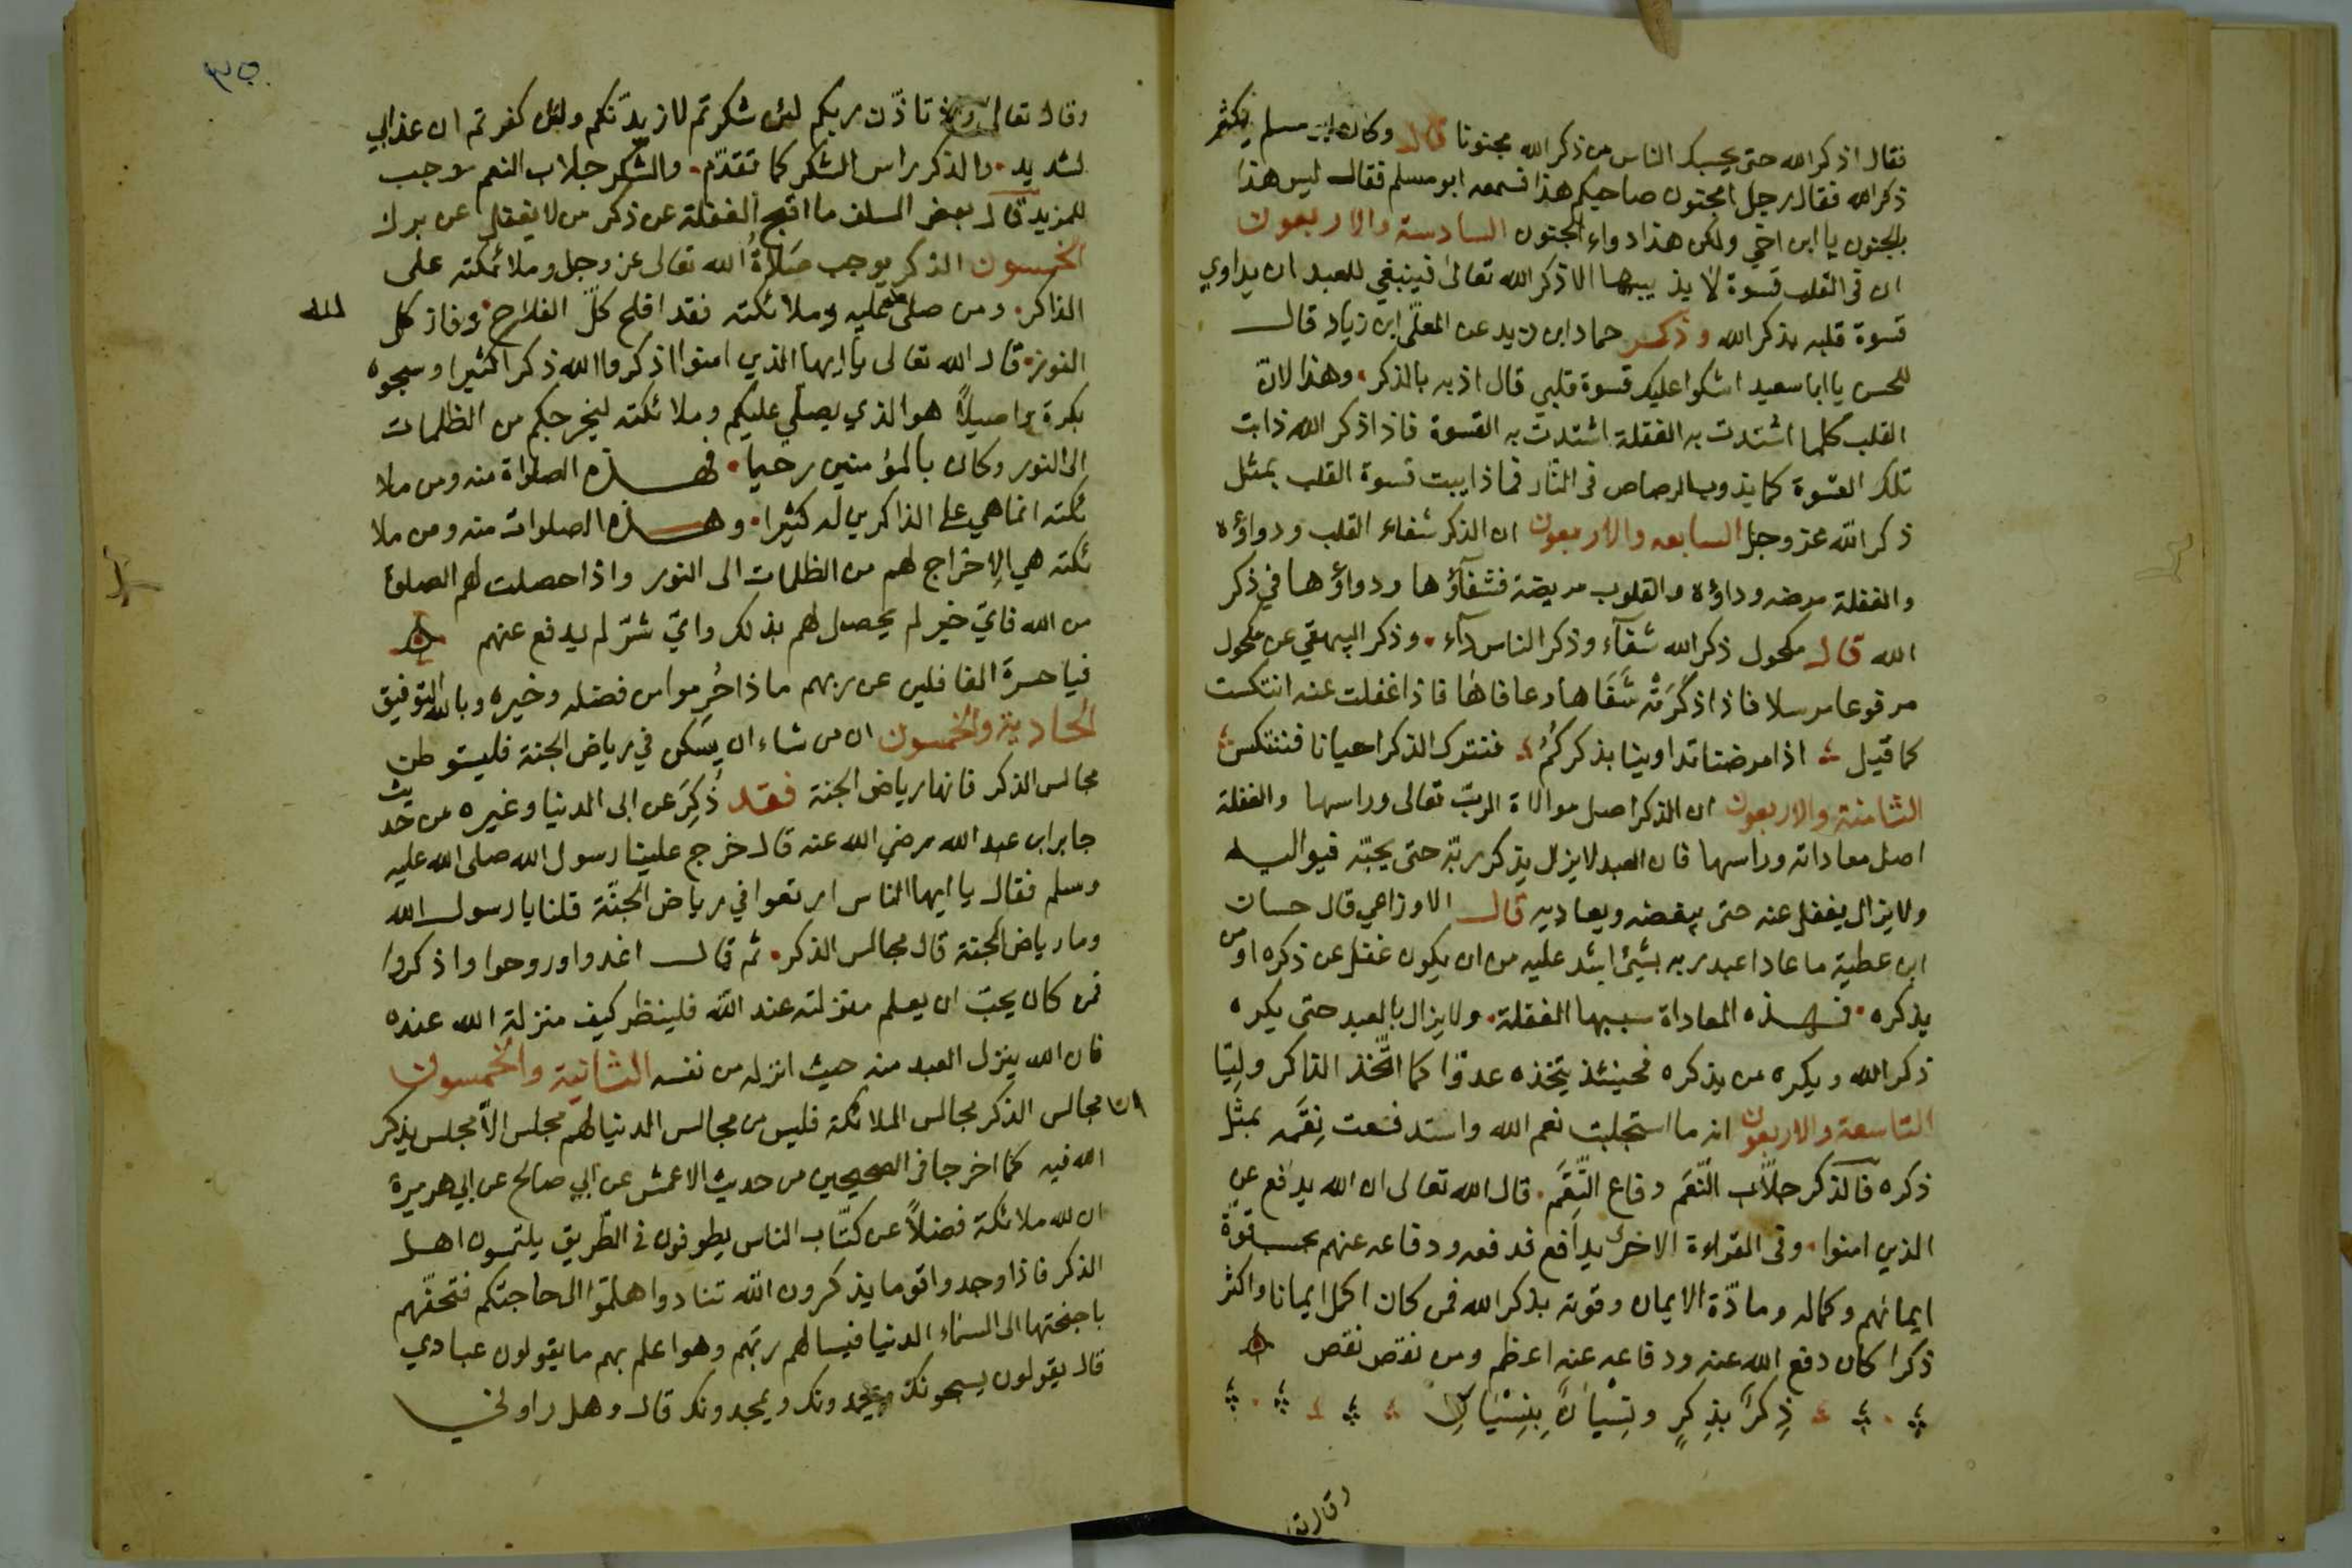 فقال اذكر الله حتى يحسبك الناس من ذكر الله مجنونا قال وكان ابو مسلم يكثر
ذكر الله فقال رجل امجنون صاحبكم هذا فسمعه ابو مسلم فقال ليس هذا
بالجنون يا ابن اخي ولكن هذا دواء الجنون السادسة والاربعون
ان فى القلب قسوة لا يذيبها الا ذكر الله تعالى فينبغي للعبد ان يداوي
قسوة قلبه بذكر الله وذكر حماد ابن زيد عن المعلّى ابن زياد قال
للحسن يا ابا سعيد اشكوا عليك قسوة قلبي قال اذبه بالذكر وهذا لان
القلب كلما اشتدت به الغفلة اشتدت به القسوة فاذا ذكر الله ذابت
تلك القسوة كما يذوب الرصاص فى النار فما ذايبت قسوة القلب بمثل
ذكر الله عز وجل السابعه والاربعون ان الذكر شفاء القلب ودواؤه
والغفلة مرضه وداؤه والقلوب مريضة فشفآؤها ودواؤها في ذكر
الله قال مكحول ذكر الله شفآء وذكر الناس دآء وذكر البيهقي عن مكحول
مرفوعا مرسلا فاذا ذكرته شفاها وعافاها فاذا غفلت عنه انتكست
كما قيل اذا مرضنا تداوينا بذكركُم فنترك الذكر احيانا فننتكس
الثامنة والاربعون ان الذكر اصل موالاة الربّ تعالى وراسها والغفلة
اصل معاداته وراسها فان العبد لا يزال يذكر ربّه حتى يحبّه فيواليه
ولا يزال يغفل عنه حتى يبغضه ويعاديه قال الاوزاعي قال حسان
ابن عطية ما عادا عبد ربه بشيئ اشد عليه من ان يكون غفل عن ذكره او من
يذكره فهذه المعاداة سببها الغفلة ولا يزال بالعبد حتى يكره
ذكر الله ويكره من يذكره فحينئذ يتخذه عدوّا كما اتّخذ الذاكر ولِيّا
التاسعة والاربعون انه ما استجلبت نعم الله واستدفعت نِقَمه بمثل
ذكره فالذكر جلّاب النّعَم دفاع النِّقَم قال الله تعالى ان الله يدافع عن
الذين امنوا وفى القراءة الاخرى يدافع فدفعه ودفاعه عنهم بحسب قوّة
ايمانهم وكماله ومادّة الايمان وقوته بذكر الله فمن كان اكمل ايمانا واكثر
ذكرا كان دفع الله عنه ودفاعه عنه اعظم ومن نقص نقص
ذِكرًا بذِكرٍ ونِسْيانًا بِنِسْيَانٍ
وقال تعا
٣٥
وقال تعالى واذ تاذّن ربكم لئن شكرتم لازيدّنكم ولئن كفرتم ان عذابي
لشديد والذكر راس الشكر كما تقدّم والشكر جلاب النعم موجب
للمزيد قال بعض السلف ما اقبح الغفلة عن ذكر من لا يغفل عن برك
الخمسون الذكر يوجب صلاةُ الله تعالى عز وجل وملائكته على
الذاكر ومن صلى عليه وملائكته فقد افلح كلّ الفلاح وفاز كل
الله
الفوز قال الله تعالى يا ايها الذين امنوا اذكروا الله ذكرا كثيرا وسبحوه
بكرة واصيلًا هو الذي يصلّي عليكم وملائكته ليخرجكم من الظلمات
الى النور وكان بالمؤمنين رحيما فهذه الصلواة منه ومن ملا
ئكته انما هي على الذاكرين له كثيرا وهذه الصلوات منه ومن ملا
ئكته هي الاخراج لهم من الظلمات الى النور واذا حصلت لهم الصلوة
من الله فايّ خير لم يحصل لهم بذلك وايّ شرّ لم يدفع عنهم
فيا حسرة الغافلين عن ربهم ما ذا حُرِموا من فضله وخيره وبالله التوفيق
الحادية والخمسون ان من شاء ان يسكن في رياض الجنة فليستوطن
مجالس الذكر فانها رياض الجنة فقد ذُكِرَ عن ابى الدنيا وغيره من حديث
جابر ابن عبد الله رضي الله عنه قال خرج علينا رسول الله صلى الله عليه
وسلم فقال يا ايها الناس ارتعوا في رياض الجنّة قلنا يا رسول الله
وما رياض الجنة قال مجالس الذكر ثم قال اغدوا وروحوا واذكروا
فمن كان يحبّ ان يعلم منزلته عند الله فلينظر كيف منزلة الله عنده
فان الله ينزل العبد منه حيث انزله من نفسه الثانية والخمسون
ان مجالس الذكر مجالس الملائكة فليس من مجالس الدنيا لهم مجلس الّا مجلس يذكر
الله فيه كما اخرجا فى الصحيحين من حديث الاعمش عن ابي صالح عن ابي هريرة
ان لله ملائكة فضلًا عن كتّاب الناس يطوفون فى الطريق يلتمسون اهل
الذكر فاذا وجدوا قوما يذكرون الله تنادوا هلمّوا الى حاجتكم فتحفّهم
باجنحتها الى السماء الدنيا فيسالهم ربّهم وهو اعلم بهم ما يقولون عبادي
قال يقولون يسبحونك ويحمدونك ويمجدونك قال وهل راوني